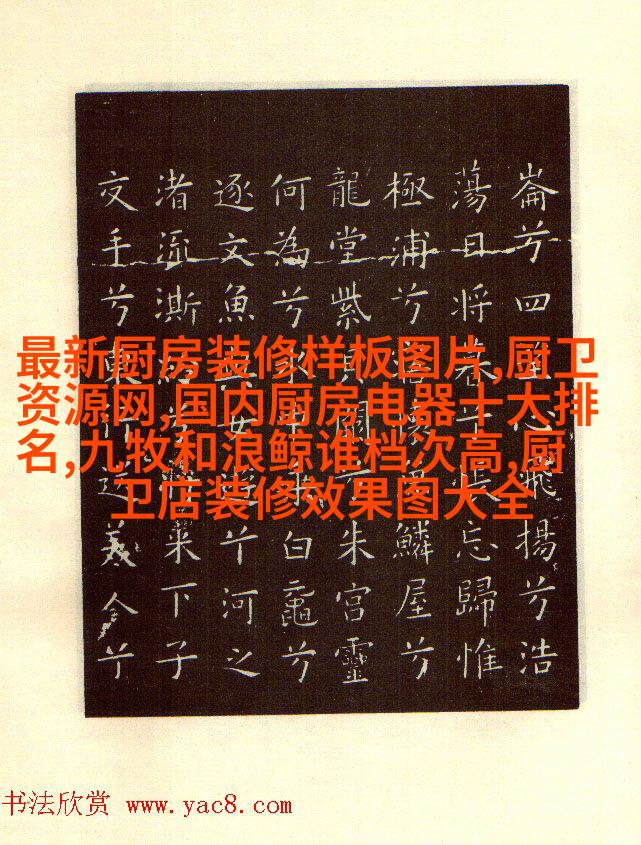 崙兮四心飛揚兮浩
蕩日將暮兮悵忘歸惟
極浦兮懷鱗屋兮
龍堂紫貝闕兮朱宮靈
何為兮水中乘白黿兮
逐文魚與女遊兮河之
渚流澌紛兮將來下子
交手兮東行送美人兮
最新厨房装修样板图片,厨卫
资源网,国内厨房电器十大排
名,九牧和浪鲸谁档次高,厨
卫店装修效果图大全
书法欣赏 www.yac8.com